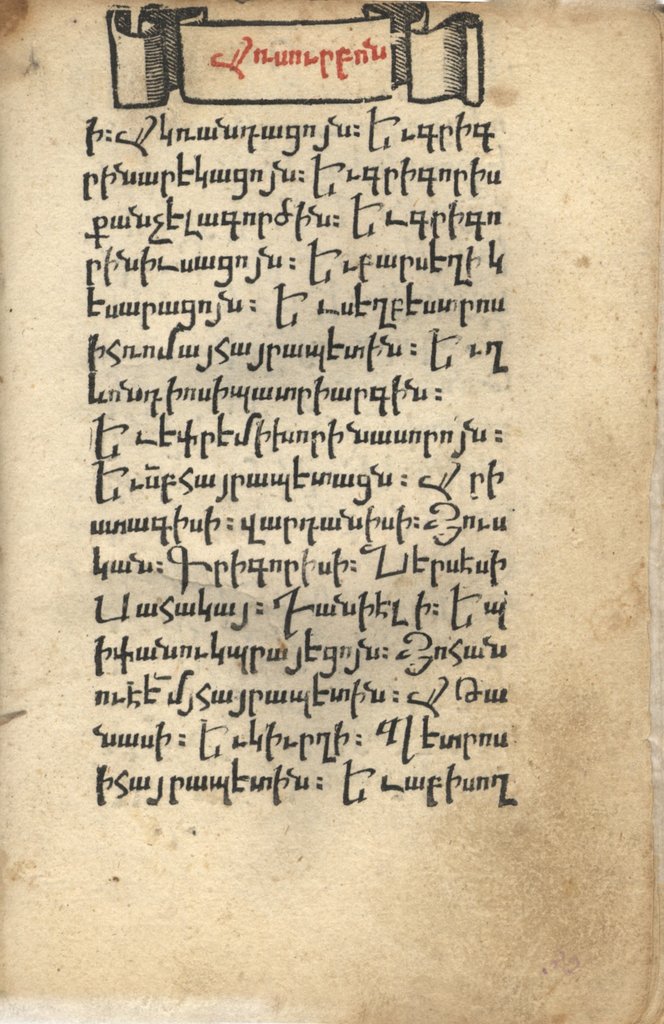 Հուսուրբան
ի։ Հկռանդացոյն։ Եւգրիգ
րինարէկացոյն։ Եւգրիգորիս
քանչելագործին։ Եւգրիգո
րինիւսացոյն։ Եւբարսեղիկ
եսարացոյն։ Եւսեղբեստրոս
իհռումայհայրապետին։ Եւղ
ևոնդիոսիպատրիարգին։
Եւեփրեմիխորինասորոյն։
Եւսբհայրապետացն։ Հրի
ստագիսի։ վարդանիսի։ Յուս
կան։ Գրիգորիսի։ Ներսեսի
Սահակայ։ Դանիէլի։ Եպ
իփանուկպրայեցոյն։ Յոհան
ուէ մյհայրապետին։ ՀԹա
նասի։ Եւկիւրղի։ Պետրոս
իհայրապետին։ Եւաբիսող